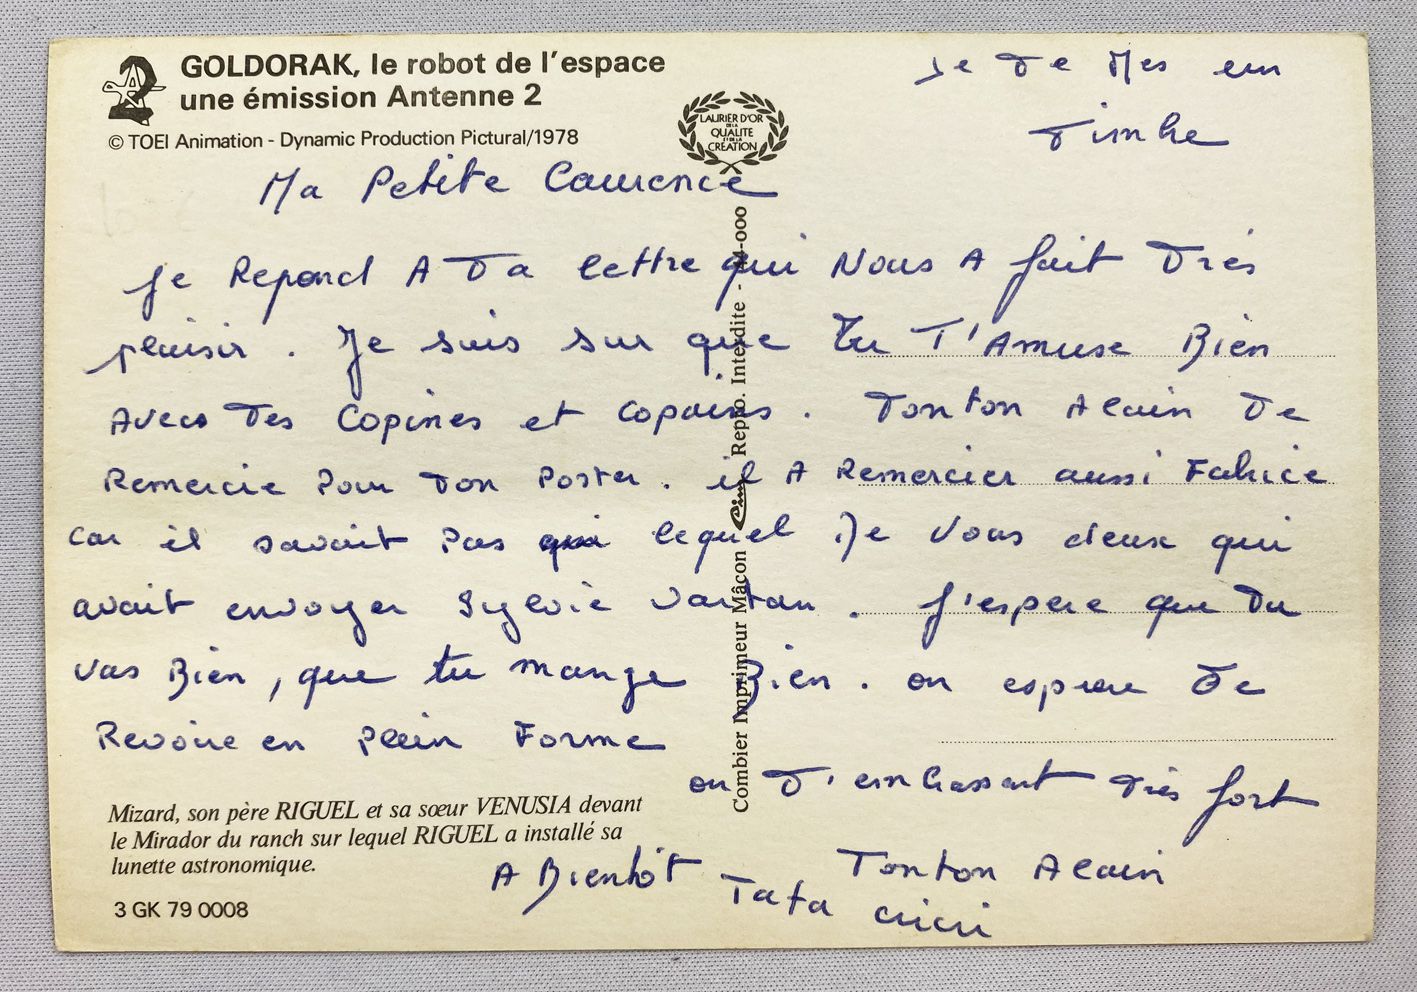 GOLDORAK, le robot de l'espace
une émission Antenne 2
© TOEI Animation - Dynamic Production Pictural/1978
LAURIER D'OR
DE LA
QUALITE
ET DE LA
CREATION
Je Te Mes un
Timbre
Ma Petite Laurence
Je Repond A Ta lettre qui Nous A fait Très
plaisir. Je suis sur que Tu T'Amuse Bien
Avec Tes Copines et copains. Tonton Alain Te
Remercie Pour Ton Poster. il A Remercier aussi Fabrice
car il savait Pas qui lequel De Vous deux qui
avait envoyer Sylvie Vartan. J'espere que Tu
vas Bien, que tu mange Bien. on espere Te
Revoire en plein Forme
on T'embrassent Très fort
A Bientôt
Tonton Alain
Tata cricri
Mizard, son père RIGUEL et sa sœur VENUSIA devant
le Mirador du ranch sur lequel RIGUEL a installé sa
lunette astronomique.
3 GK 79 0008
Combier Imprimeur Mâcon Repro. Interdite -